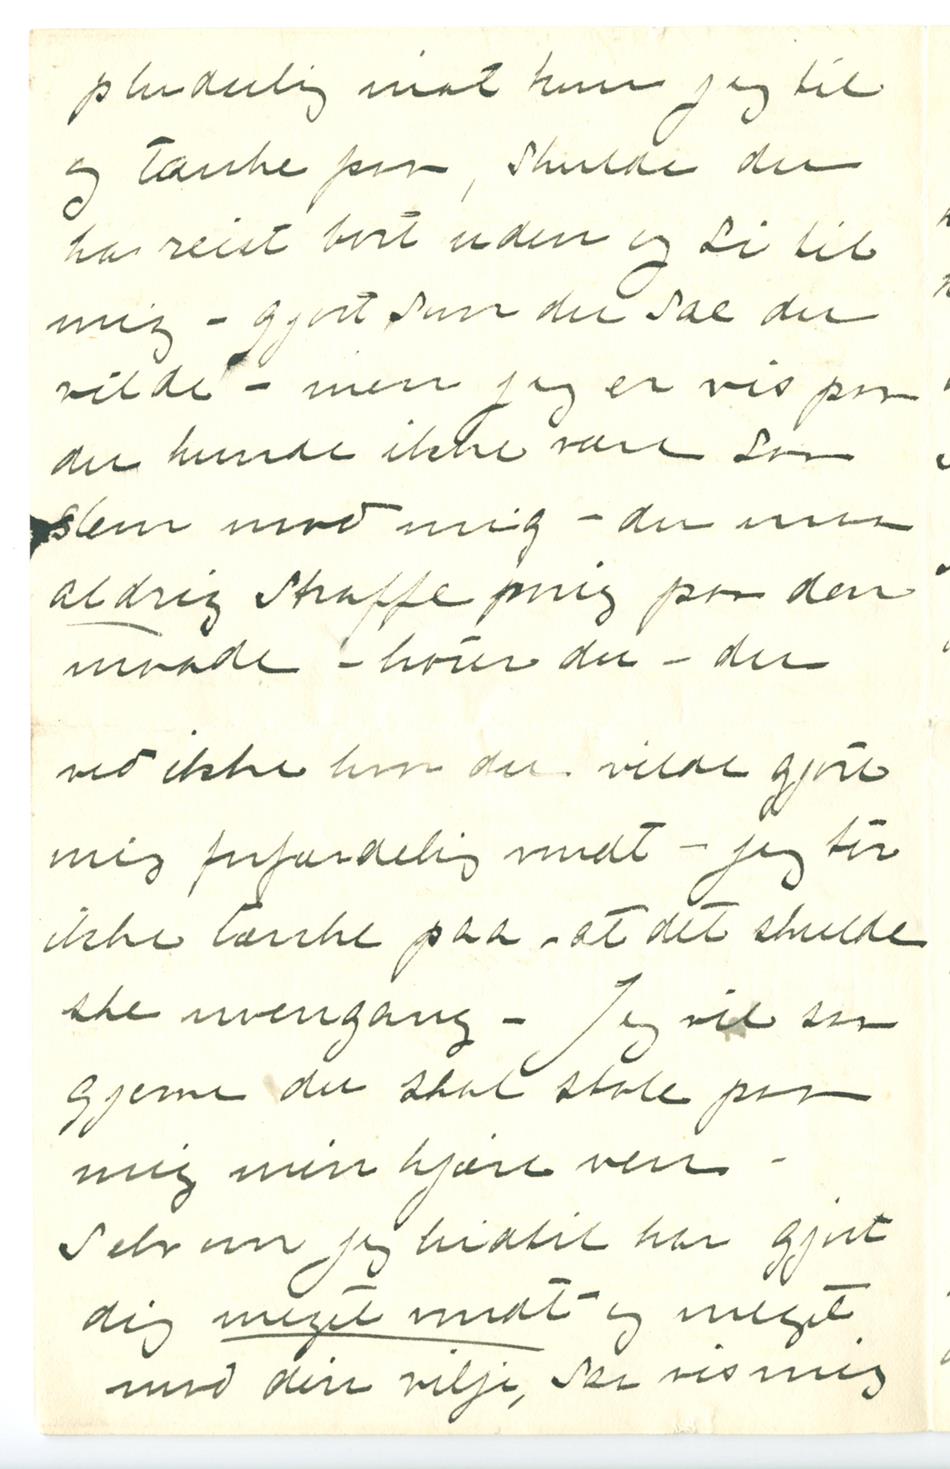 pludselig inat kom jeg til
og tænke paa, skulde du
ha reist bort uden og si til
mig – gjort som du sae du
vilde – men jeg er vis paa
du kunde ikke være saa
slem mod mig – du maa
aldrig straffe mig paa den
maade – hører du – du
ved ikke hvor du vilde gjøre
mig forfærdelig vondt – jeg tør
ikke tænke paa – at det skulde
ske nwengang – Jeg vil saa
gjerne du skal stole paa
mig min kjære ven –
Selv om jeg hidtil har gjort
dig meget vondt og meget
mod din vilje, saa vis mig